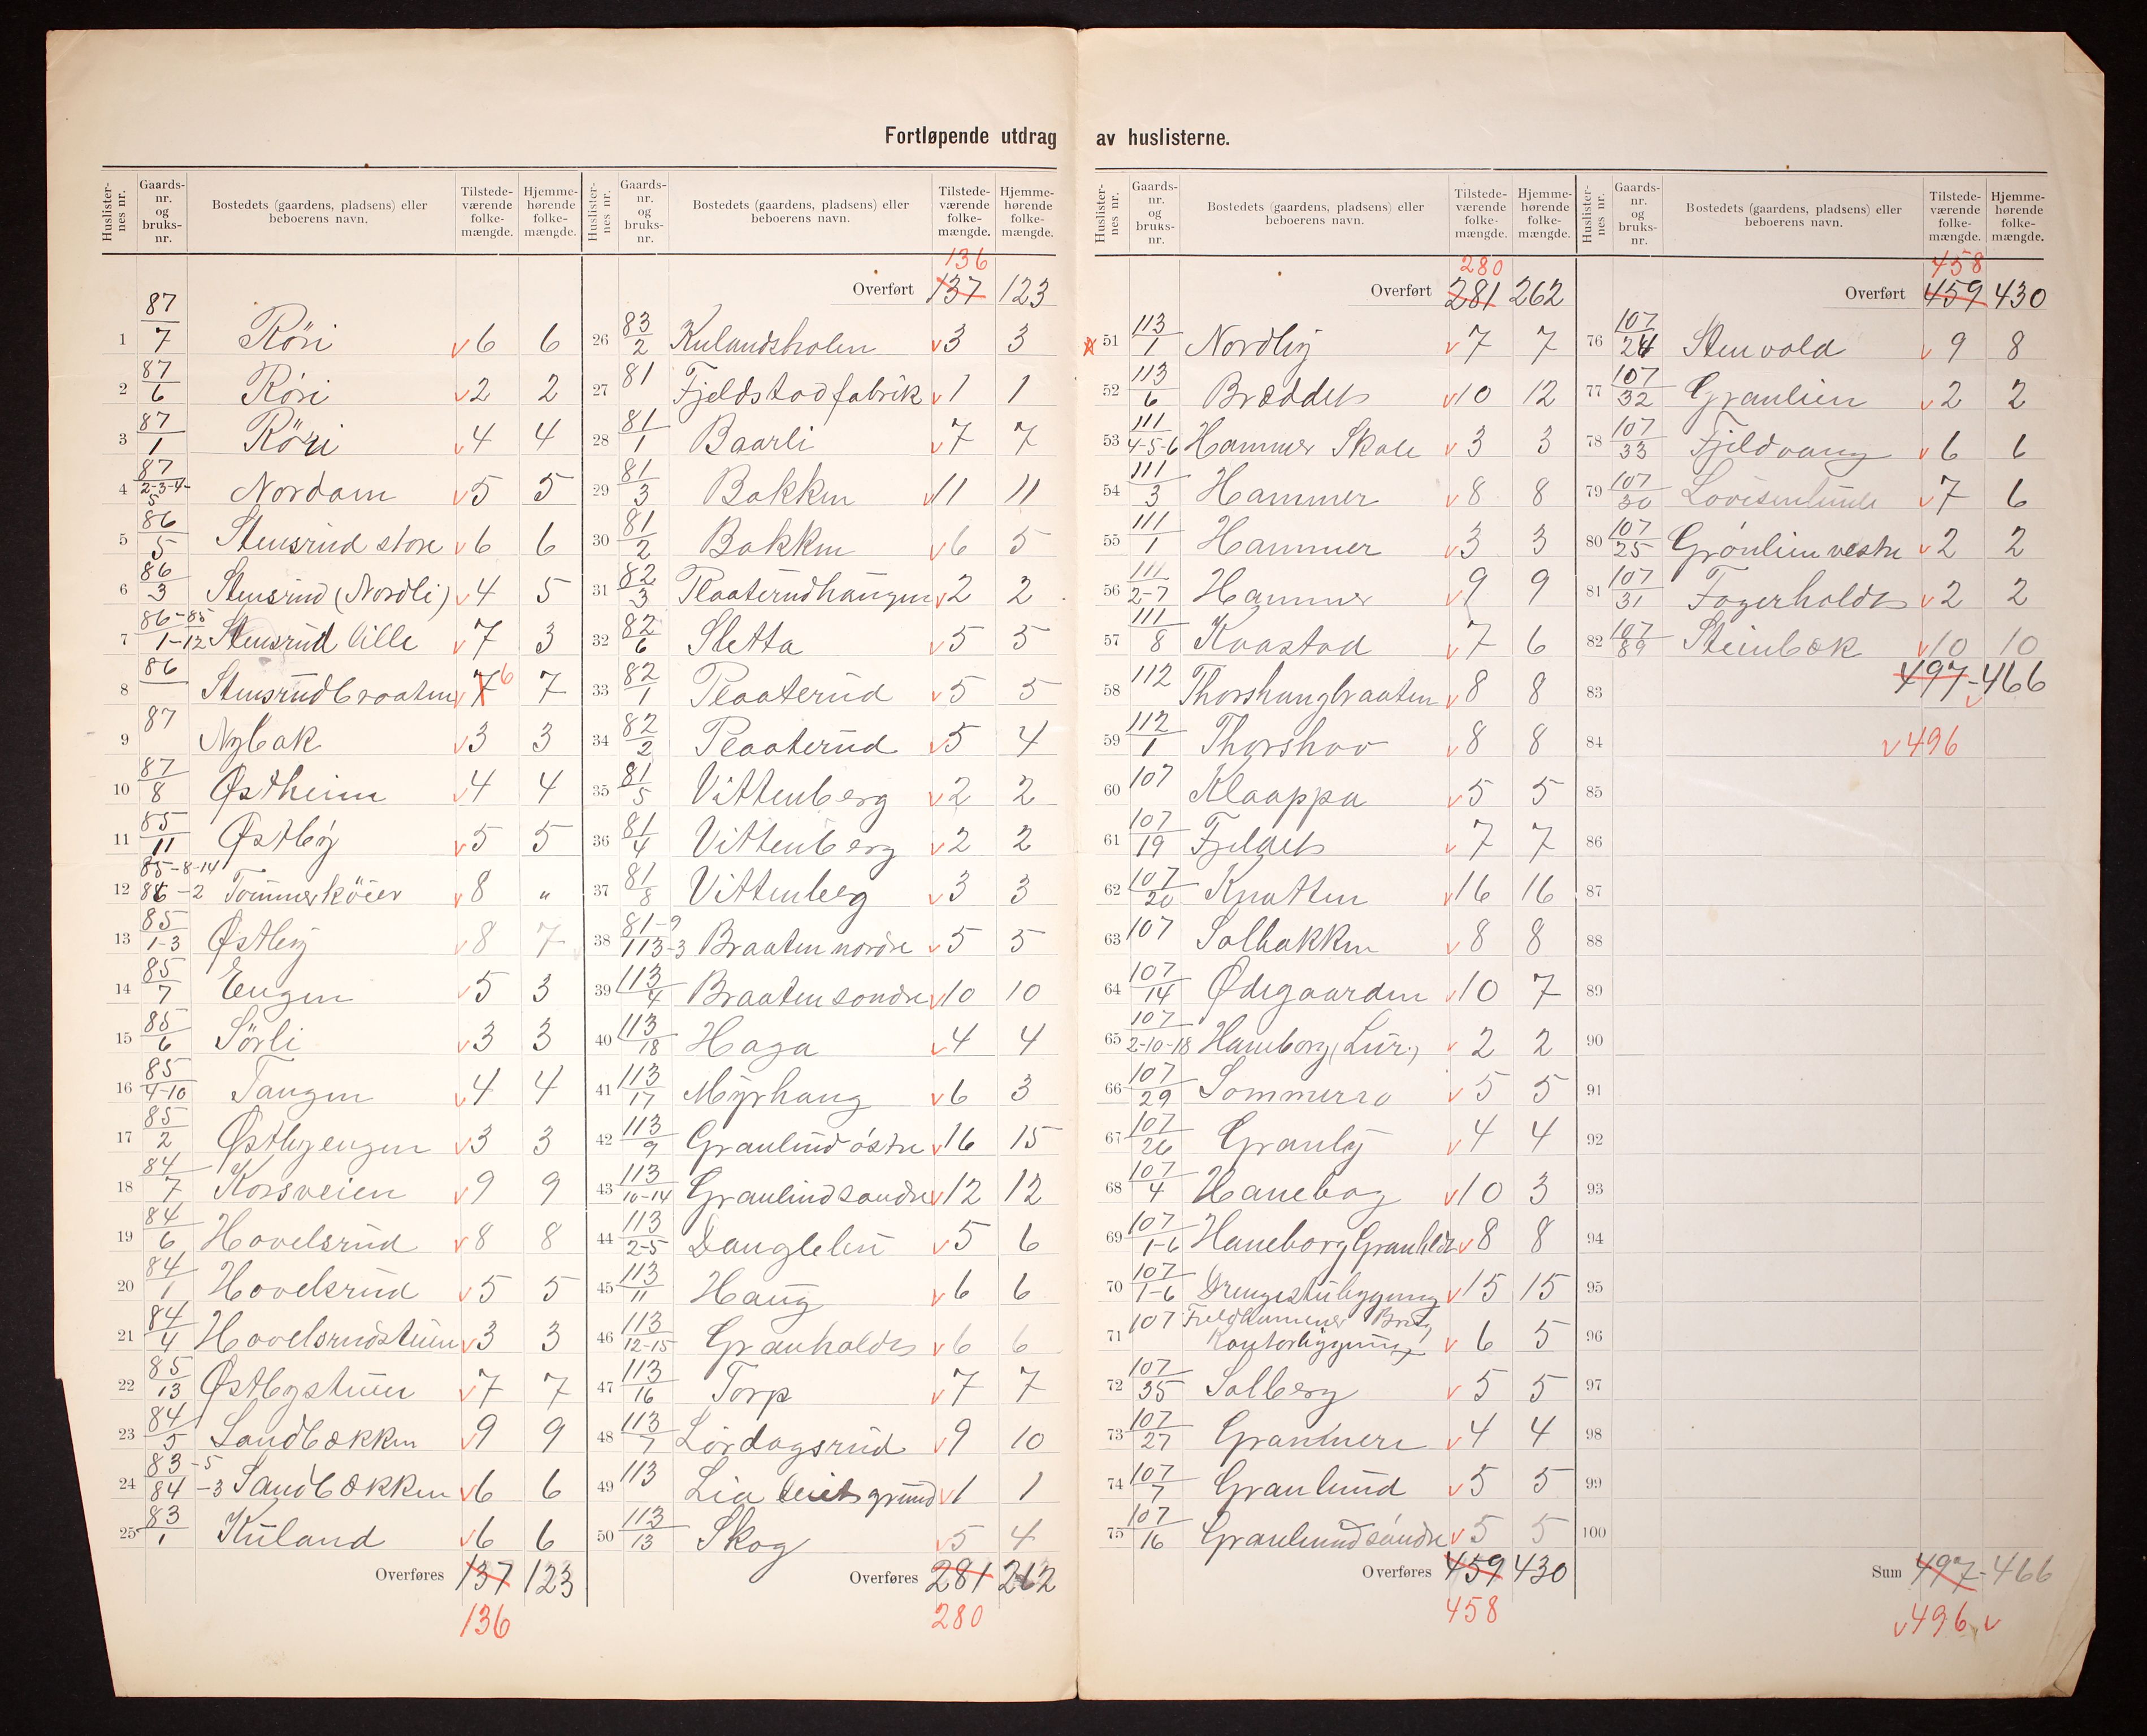 Fortløpende utdrag av huslisterne.
Huslister-nes nr. Gaards-nr. og bruks-nr. Bostedets (gaardens, pladsens) eller beboerens navn. Tilstede-værende folke-mængde. Hjemme-hørende folke-mængde.
1 87/7 Röri v6 6
2 87/6 Röri v2 2
3 87/1 Röri v4 4
4 87/2-3-4-5 Nordam v5 5
5 86/5 Stensrud store v6 6
6 86/3 Stensrud (Nordli) v4 5
7 86-85/1-12 Stensrud Lille v7 3
8 86 Stensrudbraaten v7 6 7
9 87 Nybak v3 3
10 87/8 Østheim v4 4
11 85/11 Østby v5 5
12 85-8-14 86-2 Tømmerköier v8 "
13 85/1-3 Østby v8 7
14 85/7 Engen v5 3
15 85/6 Sörli v3 3
16 85/4-10 Tangen v4 4
17 85/2 Østbyengen v3 3
18 84/7 Korsveien v9 9
19 84/6 Hovelsrud v8 8
20 84/1 Hovelsrud v5 5
21 84/4 Hovelsrudstuen v3 3
22 85/13 Østbystuen v7 7
23 84/5 Sandbækken v9 9
24 83-5 84-3 Sandbækken v6 6
25 83/1 Kuland v6 6
Overføres 137 123
136
Huslister-nes nr. Gaards-nr. og bruks-nr. Bostedets (gaardens, pladsens) eller beboerens navn. Tilstede-værende folke-mængde. Hjemme-hørende folke-mængde.
136
Overført 137 123
26 83/2 Kulandsholen v3 3
27 81 Fjeldstadfabrik v1 1
28 81/1 Baarli v7 7
29 81/3 Bakken v11 11
30 81/2 Bakken v6 5
31 82/3 Plaaterudhaugen v2 2
32 82/6 Sletta v5 5
33 82/1 Plaaterud v5 5
34 82/2 Plaaterud v5 4
35 81/5 Vittenberg v2 2
36 81/4 Vittenberg v2 2
37 81/8 Vittenberg v3 3
38 81-9 113-3 Braaten nordre v5 5
39 113/4 Braaten sondre v10 10
40 113/18 Haga v4 4
41 113/17 Myrhaug v6 3
42 113/9 Graulund östre v16 15
43 113/10-14 Graulund sondre v12 12
44 113/2-5 v5 6
45 113/11 Haug v6 6
46 113/12-15 Granholdt v6 6
47 113/16 Torp v7 7
48 113/7 Lördagsrud v9 10
49 113 Lia grund v1 1
50 113/13 Skog v5 4
Overføres 281 262
280
Huslister-nes nr. Gaards-nr. og bruks-nr. Bostedets (gaardens, pladsens) eller beboerens navn. Tilstede-værende folke-mængde. Hjemme-hørende folke-mængde.
280
Overført 281 262
51 113/1 Nordby v7 7
52 113/6 Bræddet v10 12
53 111/4-5-6 Hammer Skole v3 3
54 111/3 Hammer v8 8
55 111/1 Hammer v3 3
56 111/2-7 Hammer v9 9
57 111/8 Kaastad v7 6
58 112 Thorshaugbraaten v8 8
59 112/1 Thorshov v8 8
60 107 Klaappa v5 5
61 107/19 Fjeldet v7 7
62 107/20 Knatten v16 16
63 107 Solbakken v8 8
64 107/14 Ødegaarden v10 7
65 107/2-10-18 Haneborg v2 2
66 107/29 Sommerro v5 5
67 107/26 Granby v4 4
68 107/4 Hanebog v10 3
69 107/1-6 Haneborg Granholdt v8 8
70 107/1-6 Drengestubygning v15 15
71 107 Kontorbygning v6 5
72 107/35 Solberg v5 5
73 107/27 v4 4
74 107/7 Graulund v5 5
75 107/16 Graulund söndre v5 5
Overføres 459 430
458
Huslister-nes nr. Gaards-nr. og bruks-nr. Bostedets (gaardens, pladsens) eller beboerens navn. Tilstede-værende folke-mængde. Hjemme-hørende folke-mængde.
458
Overført 459 430
76 107/24 Stenvold v9 8
77 107/32 Graulien v2 2
78 107/33 Fjeldvang v6 6
79 107/30 Lovisenlund v7 6
80 107/25 Grönlien vestre v2 2
81 107/31 Fagerholdt v2 2
82 107/89 Steinbæk v10 10
83 497-466
84 v496
85
86
87
88
89
90
91
92
93
94
95
96
97
98
99
100
Sum 497-466
v496 v